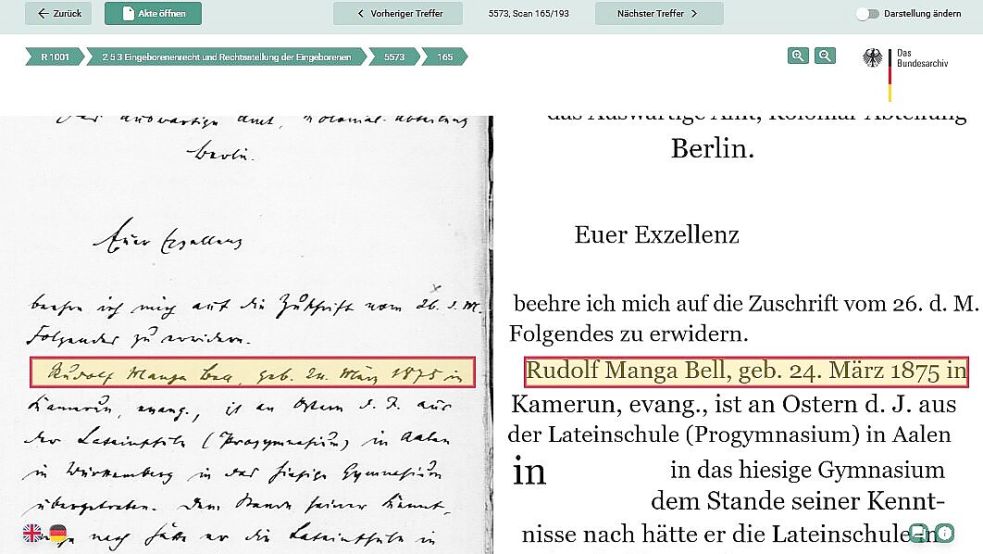 Zurück
Akte öffnen
Vorheriger Treffer
5573, Scan 165/193
Nächster Treffer
Darstellung ändern
R 1001
2.5.3 Eingeborenenrecht und Rechtsstellung der Eingeborenen
5573
165
Das
Bundesarchiv
Berlin.
Euer Exzellenz
beehre ich mich auf die Zuschrift vom 26. d. M.
Folgendes zu erwidern.
Rudolf Manga Bell, geb. 24. März 1875 in
Kamerun, evang., ist an Ostern d. J. aus
der Lateinschule (Progymnasium) in Aalen
in Württemberg in das hiesige Gymnasium
übergetreten. Dem Stande seiner Kennt-
nach hätte er die Lateinschule in
das Auswärtige Amt, Kolonial-Abteilung
Berlin.
Euer Exzellenz
beehre ich mich auf die Zuschrift vom 26. d. M.
Folgendes zu erwidern.
Rudolf Manga Bell, geb. 24. März 1875 in
Kamerun, evang., ist an Ostern d. J. aus
der Lateinschule (Progymnasium) in Aalen
in in das hiesige Gymnasium
dem Stande seiner Kennt-
nisse nach hätte er die Lateinschule in